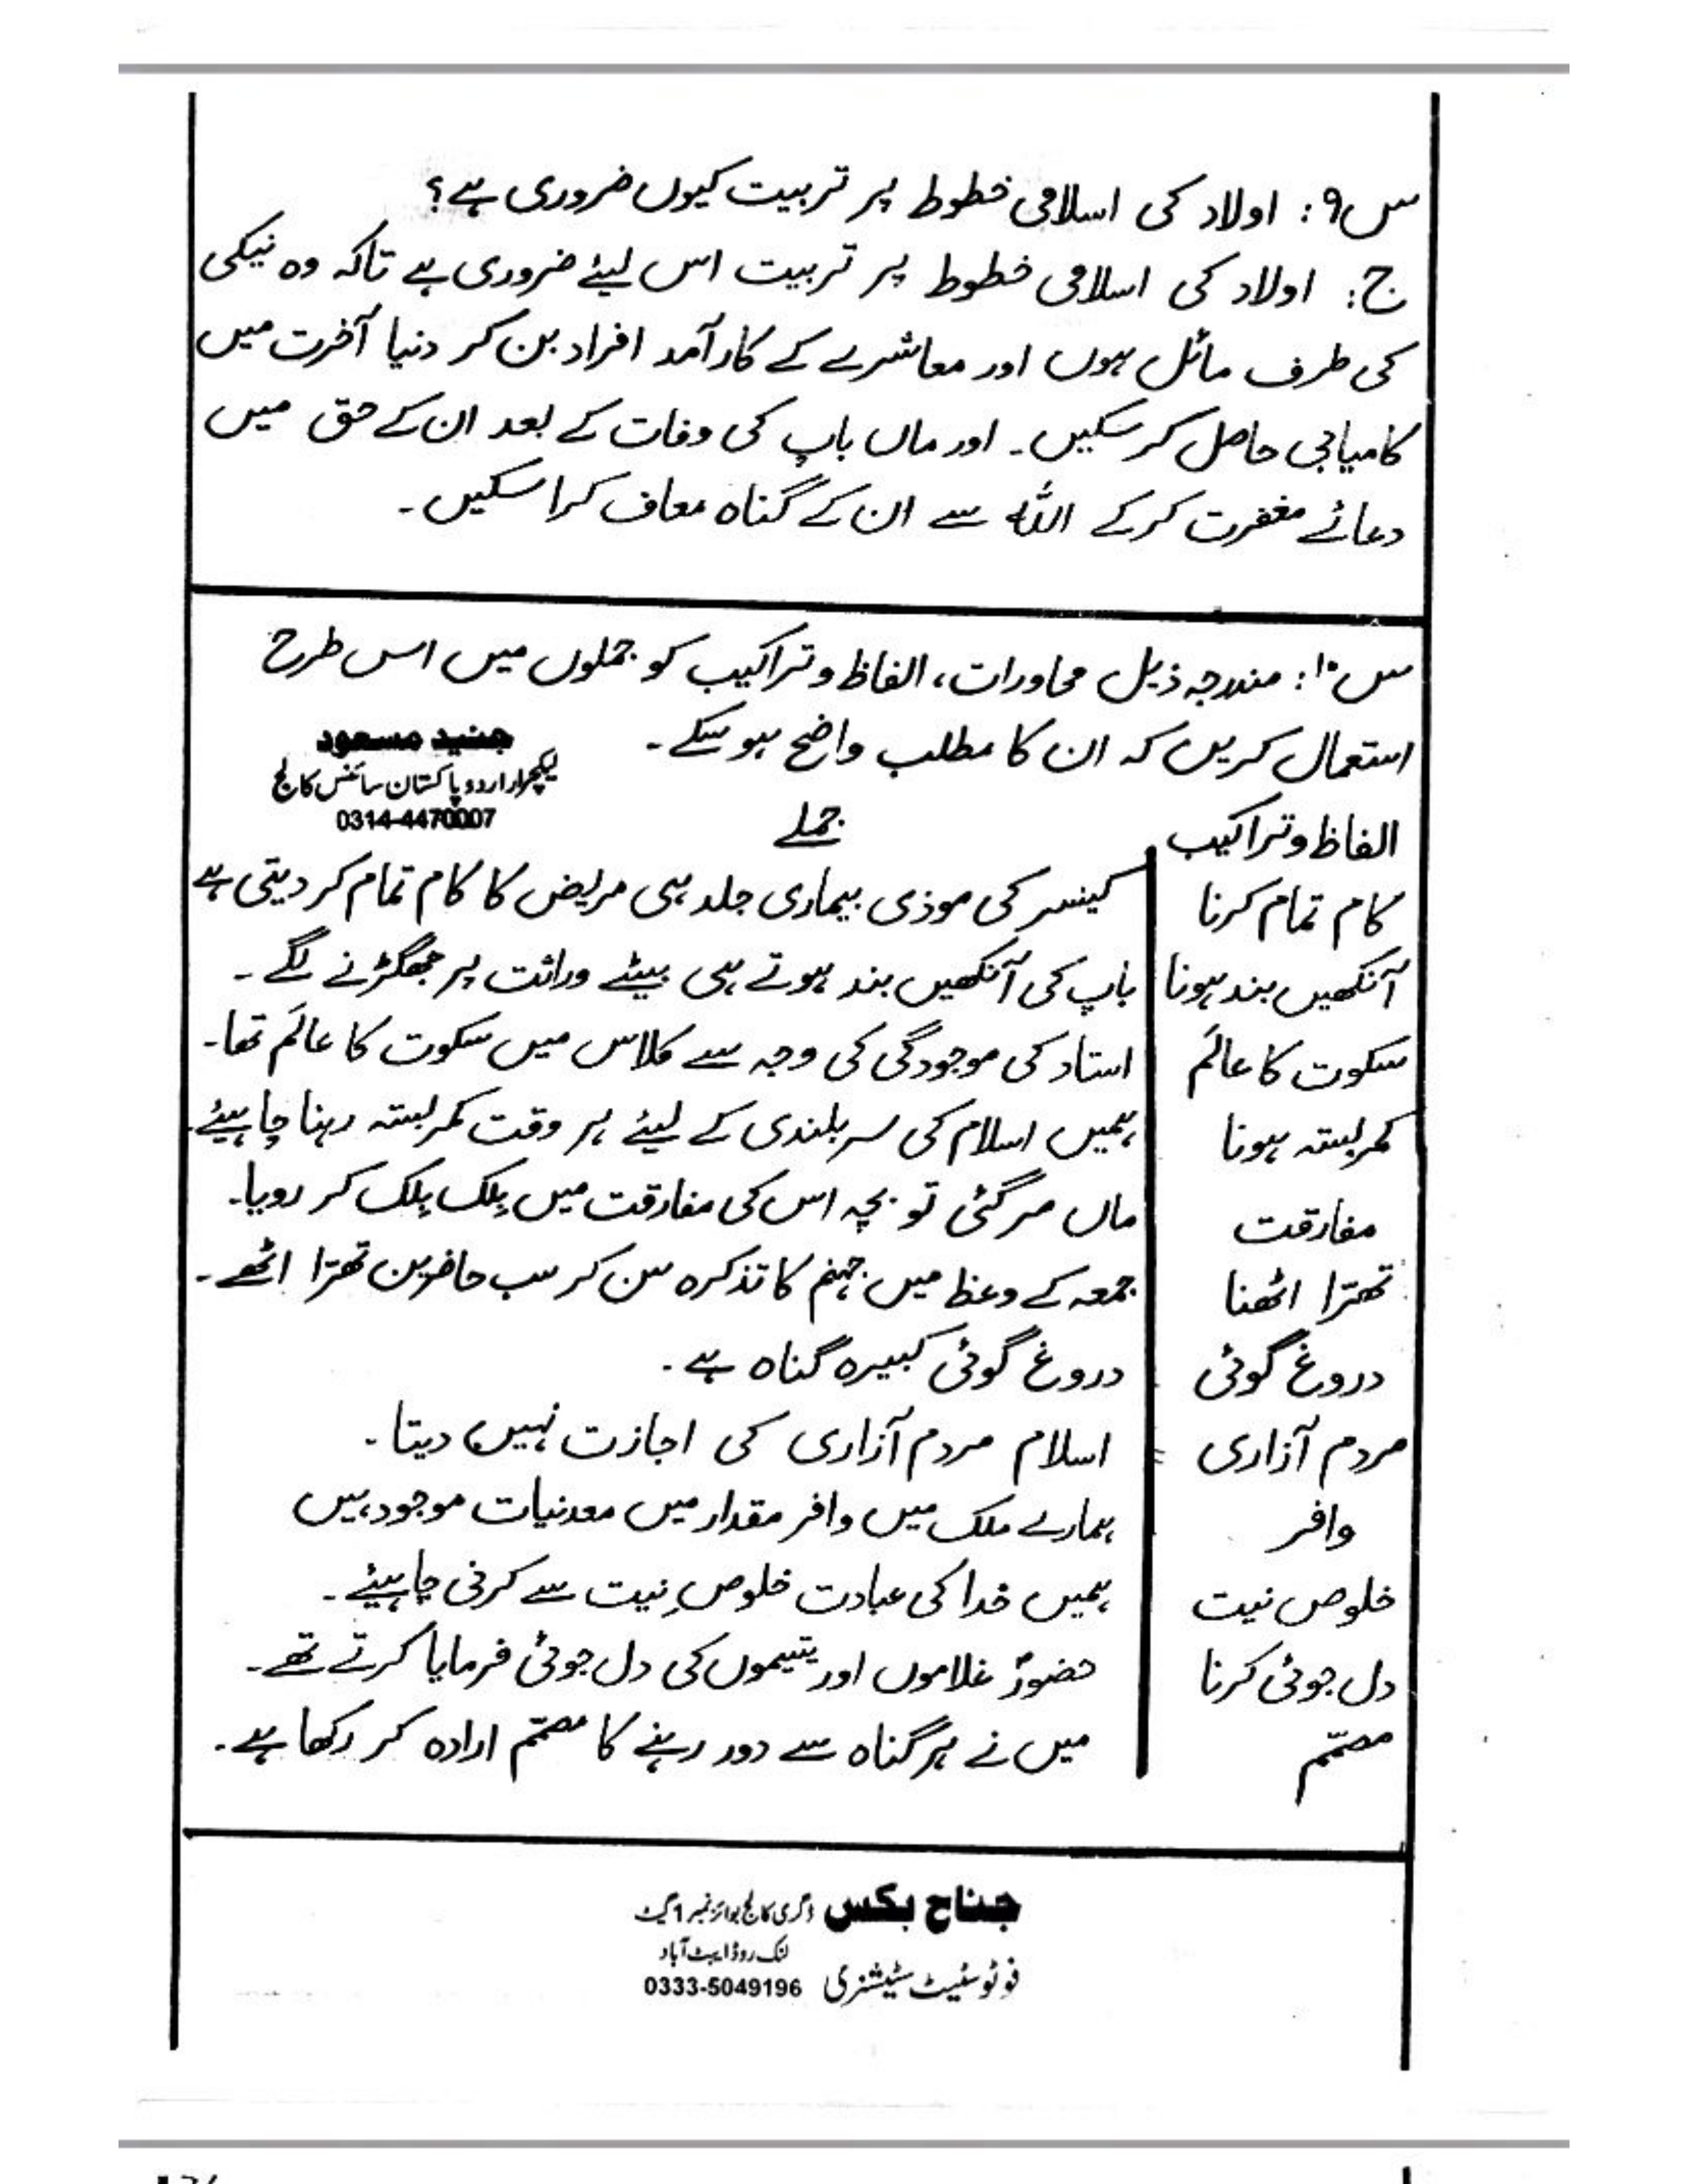 س۹: اولاد کی اسلامی خطوط پر تربیت کیوں ضروری ہے؟
ج: اولاد کی اسلامی خطوط پر تربیت اس لیئے ضروری ہے تاکہ وہ نیکی
کی طرف مائل ہوں اور معاشرے کے کارآمد افراد بن کر دنیا آخرت میں
کامیابی حاصل کرسکیں۔ اور ماں باپ کی وفات کے بعد ان کے حق میں
دعائے مغفرت کرکے اللہ سے ان کے گناہ معاف کرا سکیں۔
س۱۰: مندرجہ ذیل محاورات، الفاظ و تراکیب کو جملوں میں اس طرح
استعمال کریں کہ ان کا مطلب واضح ہو سکے۔
جنید مسعود
لیکچرار اردو پاکستان سائنس کالج
0314-4470007
الفاظ و تراکیب جملے
کام تمام کرنا کینسر کی موذی بیماری جلد ہی مریض کا کام تمام کر دیتی ہے
آنکھیں بند ہونا باپ کی آنکھیں بند ہوتے ہی بیٹے وراثت پر جھگڑنے لگے۔
سکوت کا عالَم استاد کی موجودگی کی وجہ سے کلاس میں سکوت کا عالَم تھا۔
کمربستہ ہونا ہمیں اسلام کی سربلندی کے لیئے ہر وقت کمربستہ رہنا چاہیئے۔
مفارقت ماں مرگئی تو بچہ اس کی مفارقت میں بِلک بِلک کر رویا۔
تھرّا اٹھنا جمعہ کے وعظ میں جہنم کا تذکرہ سن کر سب حاضرین تھرّا اٹھے۔
دروغ گوئی دروغ گوئی کبیرہ گناہ ہے۔
مردم آزاری اسلام مردم آزاری کی اجازت نہیں دیتا۔
وافر ہمارے ملک میں وافر مقدار میں معدنیات موجود ہیں
خلوص نیت ہمیں خدا کی عبادت خلوصِ نیت سے کرنی چاہیئے۔
دل جوئی کرنا حضورؐ غلاموں اور یتیموں کی دل جوئی فرمایا کرتے تھے۔
مصمّم میں نے ہر گناہ سے دور رہنے کا مصمّم ارادہ کر رکھا ہے۔
جناح بکس ڈگری کالج بوائز نمبر 1 گیٹ
لنک روڈ ایبٹ آباد
فوٹوسٹیٹ سٹیشنری 0333-5049196